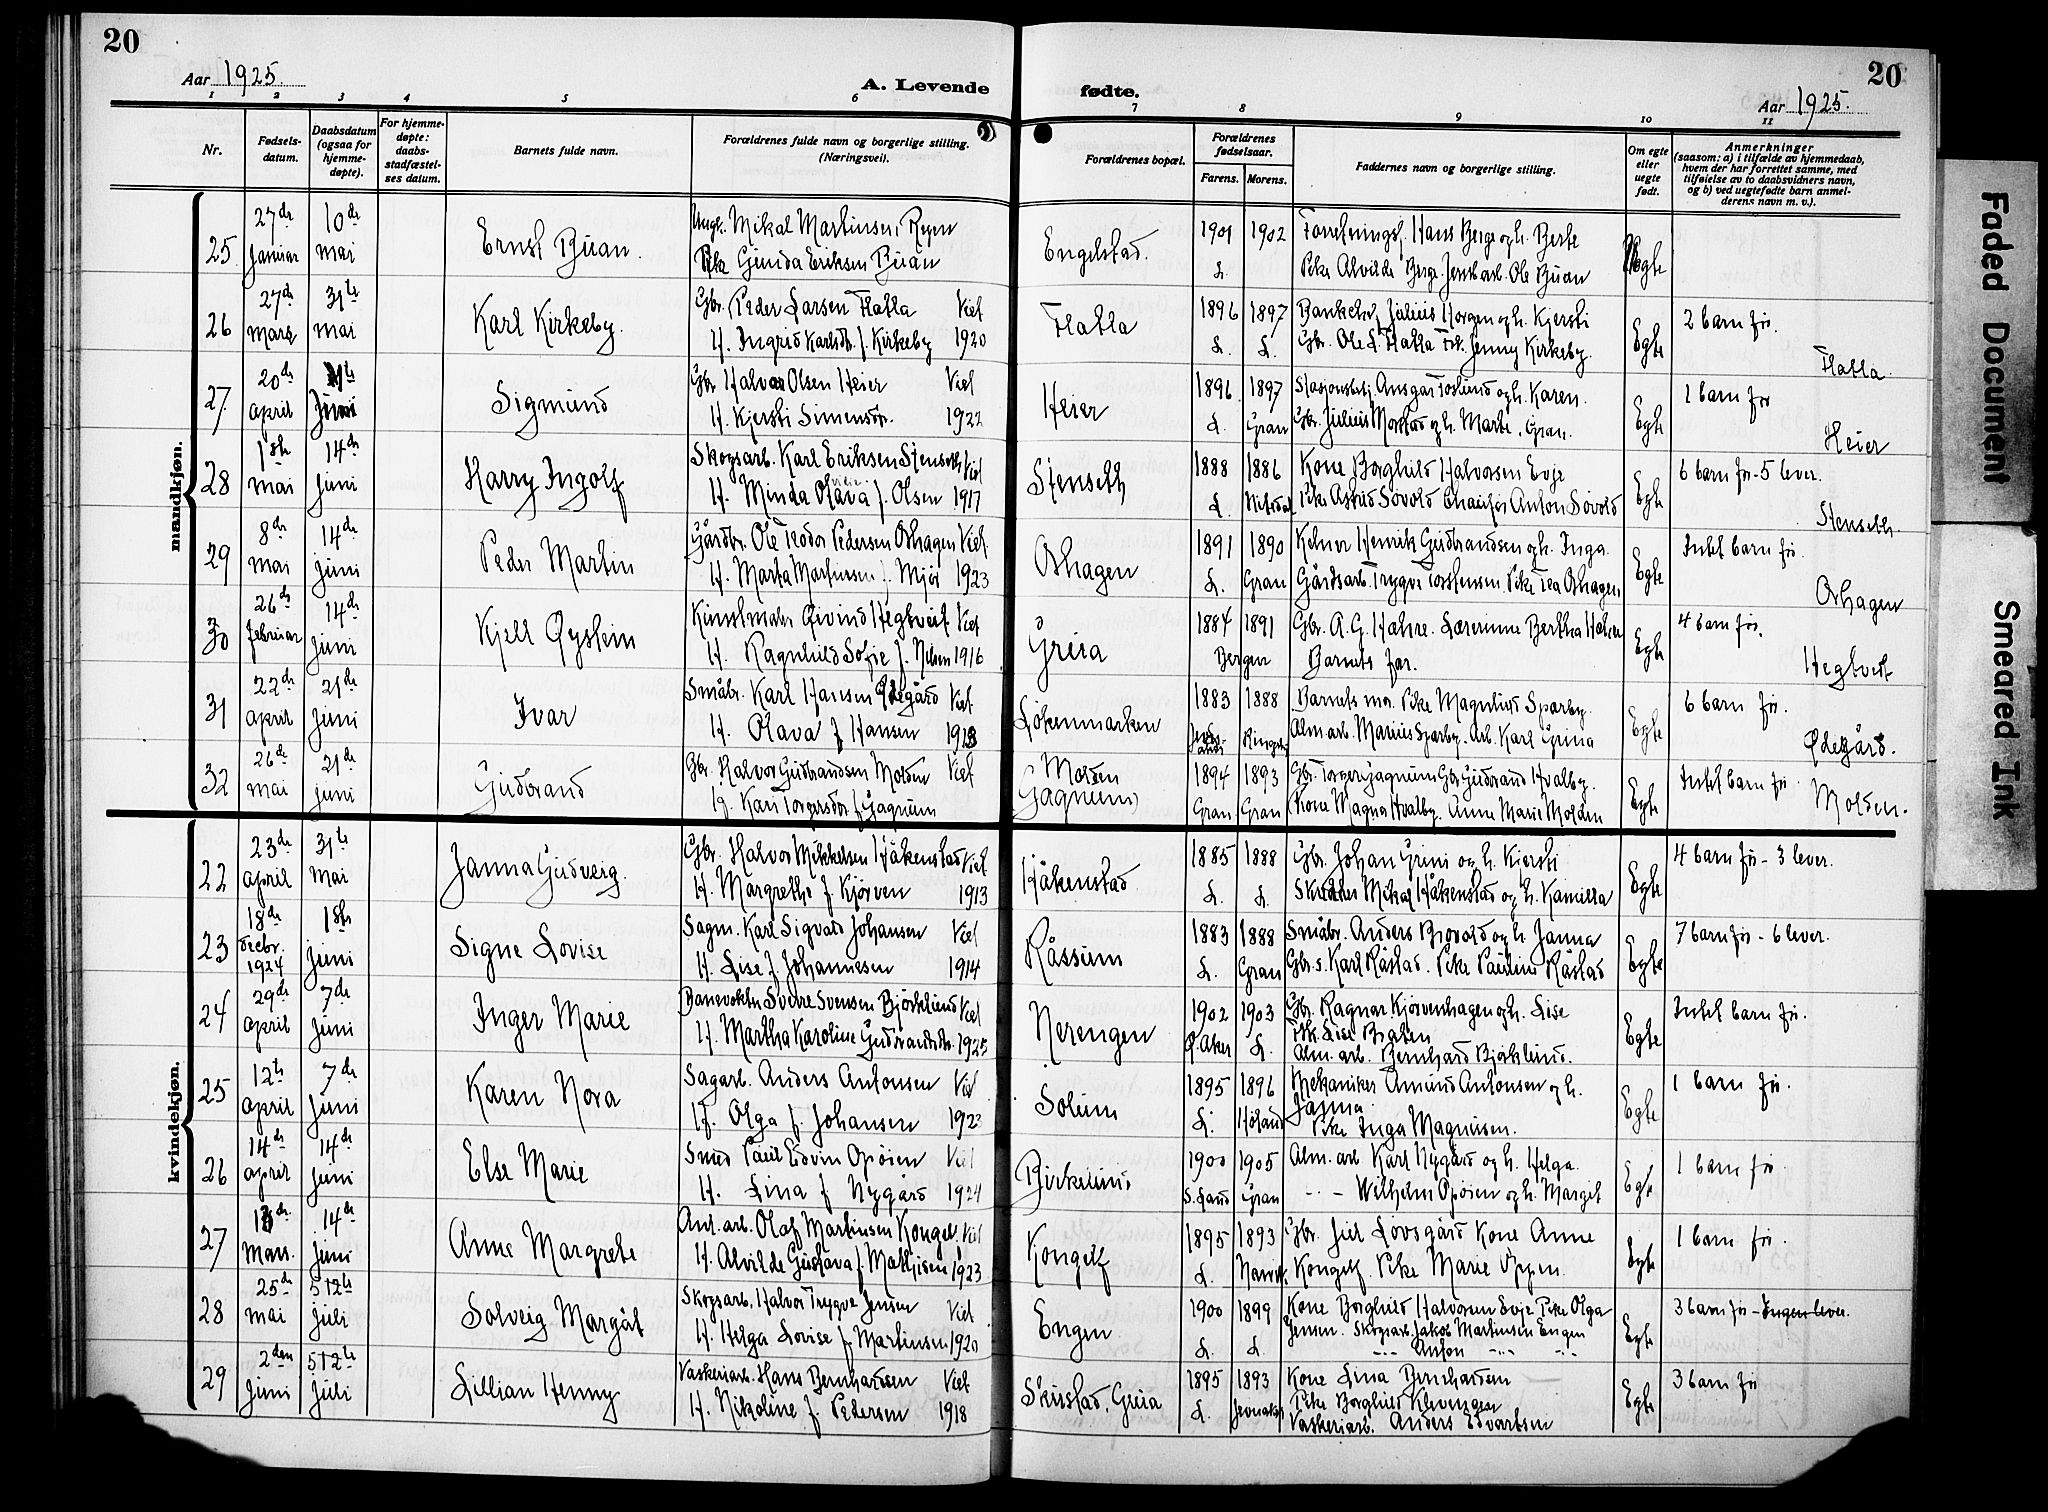 20
Aar 1925.
A. Levende
fødte.
20
Aar 1925.
1 2 3 4 5 6 7 8 9 10 11
Nr.
Fødsels-
datum.
Daabsdatum
(ogsaa for
hjemme-
døpte).
For hjemme-
døpte:
daabs-
stadfæstel-
ses datum.
Barnets fulde navn.
Forældrenes fulde navn og borgerlige stilling.
(Næringsvei).
Forældrenes bopæl.
Forældrenes
fødselsaar.
Farens. Morens.
Faddernes navn og borgerlige stilling.
Om egte
eller
uegte
født.
Anmerkninger
(saasom: a) i tilfælde av hjemmedaab,
hvem der har forrettet samme, med
tilføielse av to daabsvidners navn,
og b) ved uegtefødte barn anmel-
derens navn m. v.).
mandkjøn.
25 27de Januar 10de mai Ernst Buan. Ungk. Mikal Martinsen, Røgen Engelstad. 1901 1902 Hans Berge og h. Berte Uegte
Pike Gunda Eriksen Buan L. Pike Alvilde Berge. Ole Buan
26 27de mars 31te mai Karl Kirkeby. Gbr. Peder Larsen Flatla Viet Flatla 1896 1897 Julius Horgen og h. Kjersti Egte 2 barn før.
H. Ingrid Karlsdtr. f. Kirkeby 1920 L. L. Gbr. Ole L. Flatla Frk. Jenny Kirkeby. Flatla.
27. 20de april Juni Sigmund Gbr. Halvor Olsen Heier Viet Heier 1896 1897 Ansgar Foslund og h. Karen. Egte 1 barn før
H. Kjersti Simensdtr. 1922 L. Gran Gbr. Julius Morstad og h. Marte, Gran. Heier
28 1ste mai 14de juni Harry Ingolf Skogsarb. Karl Eriksen Stenseth Viet Stenseth 1888 1886 Kone Borghild Halvorsen Evje Egte 6 barn før - 5 lever.
H. Minda Olava f. Olsen 1917 L. Pike Astrid Søvold Chaufør Anton Søvold Stenseth
29 8de mai 14de juni Peder Martin Gårdbr. Ole Teodor Pedersen Orhagen Viet Orhagen 1891 1890 Kelner Henrik Gudbrandsen og h. Inga. Egte Intet barn før.
H. Marta Martinsen f. Mjør 1923 L. Gran Gårdsarb. Trygve Torstensen Pike Tea Orhagen. Orhagen
30 26de februar 14de juni Kjell Øystein Kunstmaler Øivind Hegtveit Viet Greia 1884 1891 Gbr. A. G. Hahre. Lærerinne Bertha Hahre Egte 4 barn før.
H. Ragnhild Sofie f. Nilsen 1916 Bergen Barnets far. Hegtveit
31 22de april 21de juni Ivar Småbr. Karl Hansen Ødegård Viet Løkenmarken 1883 1888 Barnets mor. Pike Magnhild Sparby. Egte 6 barn før.
H. Olava f Hansen Alm arb. Marius Sparby. Arb. Karl Grina Ødegård.
32 26de mai 21de juni Gudbrand Gbr. Halvor Gudbrandsen Molden Viet Molden (Gagnum) 1894 1893 Gbr. Torger Gagnum Gbr Gudbrand Hvalby. Egte Intet barn før.
H. Kari Torgersdtr. f Gagnum Gran Gran Kone Magna Hvalby. Anne Marie Molden Molden.
kvindekjøn.
22 23de april 31te mai Janna Gudveig. Gbr. Halvor Mikkelsen Håkenstad Viet Håkenstad 1885 1888 Gbr. Johan Grini og h. Kjersti Egte 4 barn før - 3 lever.
H. Margrethe f. Kjørven 1913 L. L. Mikal Håkenstad og h. Kamilla
23 18de decbr. 1924 1ste juni Signe Lovise Sagm. Karl Sigvald Johansen Viet Råssum 1883 1888 Småbr. Anders Brovold og h. Janna Egte 7 barn før - 6 lever.
H. Lise f. Johannesen 1914 L. Gran Gbr.s. Karl Råstad. Pike Pauline Råstad
24 29de april 7de juni Inger Marie Banevokter Sverre Svensen Bjørklund Viet Nerengen 1902 1903 Gbr. Ragnar Kjørvenhagen og h. Lise Egte Intet barn før.
H. Martha Karoline Gudbrandsdtr. 1925 Ø. Aker L. Frk. Lise Braten
Alm. arb. Bernhard Bjørklund.
25 12te april 7de juni Karen Nora Sagarb. Anders Antonsen Viet Solum 1895 1896 Mekaniker Amund Antonsen og h. Egte 1 barn før.
H. Olga f. Johansen 1923 L. Høland Janna
Pike Inga Magnusen.
26 14de april 14de juni Else Marie Smed Paul Edvin Opøien Viet Birkelund 1900 1905 Alm. arb Karl Nygård og h. Helga. Egte 1 barn før.
H. Lina f Nygård 1924 S. Land Gran - - Wilhelm Opøien og h. Margit
27 mars. 14de juni Anne Margrete Anl. arb. Olaf Martinsen Kongelf. Viet Kongelf 1895 1893 Gbr. Juel Lovsgård Kone Anne Egte 1 barn før.
H. Alvilde Gustava f. Mathisen 1923 L. Kongelf. Pike Marie Oppen.
28 25de mai 5te juli Solveig Margåt Skogsarb. Halvor Trygve Jensen Viet Engen 1900 1899 Kone Borghild Halvorsen Evje Pike Olga Egte 3 barn før - Ingen lever.
H. Helga Lovise f. Martinsen 1920 L. L. Jensen. Skogsarb. Jakob Martinsen Engen
- - - Anton - - - - - -
29 2den juni juli Lillian Henny Vaskeriarb. Hans Bernhardsen Viet Skiastad, Greia 1895 1893 Kone Lina Bernhardsen Egte 3 barn før
H. Nikoline f. Pedersen 1918 L. Jevnaker Pike Borghild Klevengen
Vaskeriarb. Anders Edvartsen
Faded Document
Smeared Ink